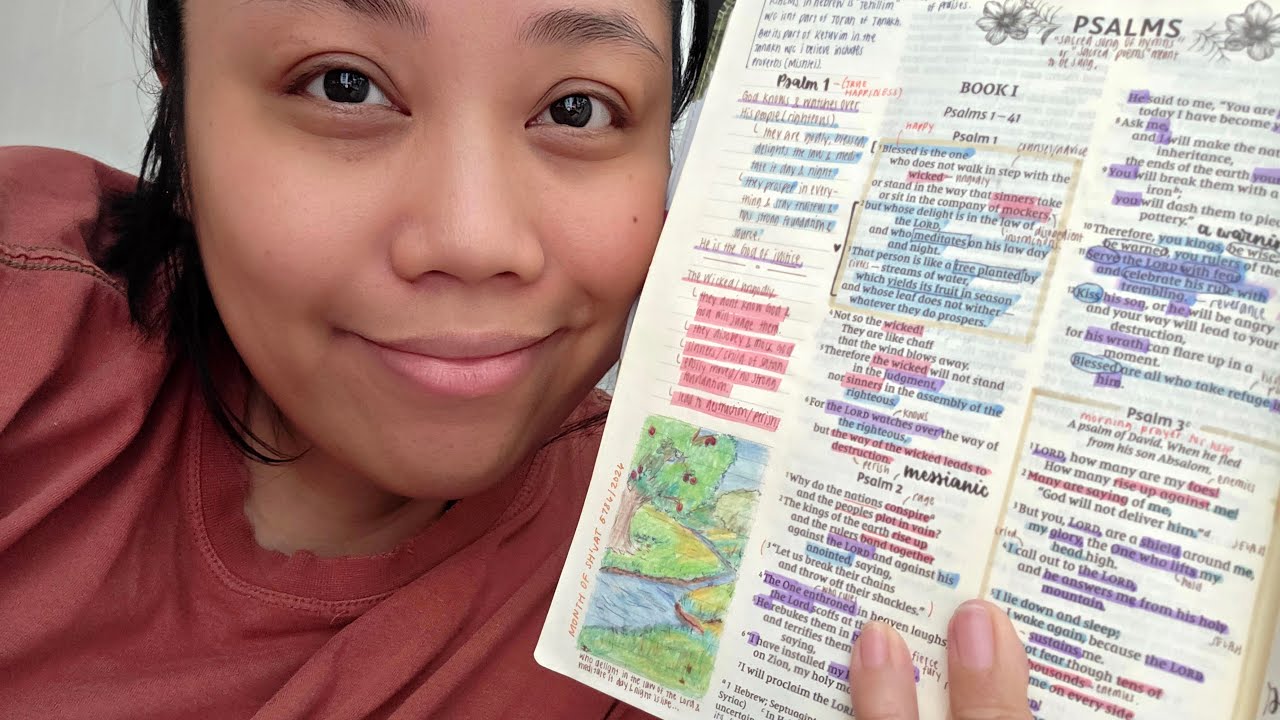 Psalms in Hebrew is "Tehillim"
w/c isnt part of Torah or Tanakh.
But its part of Ketuvim in the
Tanakh w/c I believe includes
Proverbs (Mishlei).
of praises.
PSALMS
"sacred song or hymns"
or "sacred poems" meant
to be sung.
Psalm 1 - (TRUE
HAPPINESS)
God knows & watches over
His people (righteous).
they are godly, blessed
delights the law & medi-
tate it day & night
they prosper in every-
thing & stay fruitful &
has strong foundation &
source
He is the God of justice.
The wicked/ungodly
they dont know God &
God will judge them
they disobey & mock God
sinners/child of satan
easily moved/no strong
foundation.
lead to destruction/perish
MONTH OF SH'VAT 5784/2024
who delight in the law of the Lord &
meditate it day & night is like...
BOOK I
Psalms 1–41
Psalm 1
HAPPY
Blessed is the one
who does not walk in step with the
wicked – ungodly
or stand in the way that sinners take
or sit in the company of mockers,
2 but whose delight is in the law of
the LORD,
and who meditates on his law day
and night.
3 That person is like a tree planted by
rivers – streams of water,
which yields its fruit in season
and whose leaf does not wither –
whatever they do prospers.
counsel/advice
disobedient
instructions
4 Not so the wicked!
They are like chaff
that the wind blows away.
5 Therefore the wicked will not stand
in the judgment,
nor sinners in the assembly of the
righteous.
6 For the LORD watches over the way of
knows
the righteous,
but the way of the wicked leads to
destruction.
perish
messianic
Psalm 2
rage
1 Why do the nations conspire
and the peoples plot in vain?
2 The kings of the earth rise up
and the rulers band together
against the LORD and against his
anointed, saying,
3 "Let us break their chains
and throw off their shackles."
who rules
4 The One enthroned in heaven laughs
the Lord scoffs at
5 He rebukes them in
and terrifies them
saying,
fierce
fury
6 "I have installed my
on Zion, my holy mo
7 I will proclaim the LORD
a 1 Hebrew; Septuagint
Syriac)
uncertain
He said to me, "You are
today I have become
8 Ask me,
and I will make the na
inheritance,
the ends of the earth your
9 You will break them with a
iron b;
you will dash them to pie
pottery."
a warni
10 Therefore, you kings, be wise
be warned, you rulers of the
11 Serve the LORD with fear
and celebrate his rule with
trembling.
reverance
12 Kiss his son, or he will be angry
and your way will lead to your
destruction,
for his wrath can flare up in a
moment.
Blessed are all who take refuge
him.
Psalm 3
morning prayer for help
A psalm of David. When he fled
from his son Absalom.
1 LORD, how many are my foes!
enemies
How many rise up against me!
2 Many are saying of me,
"God will not deliver him."
3 But you, LORD, are a shield around me,
my glory, the One who lifts my
head high.
cried
4 I call out to the LORD,
and he answers me from his holy
mountain.
5 I lie down and sleep;
I wake again, because the LORD
sustains me.
6 not fear though tens of
thousands
enemies
me on every side